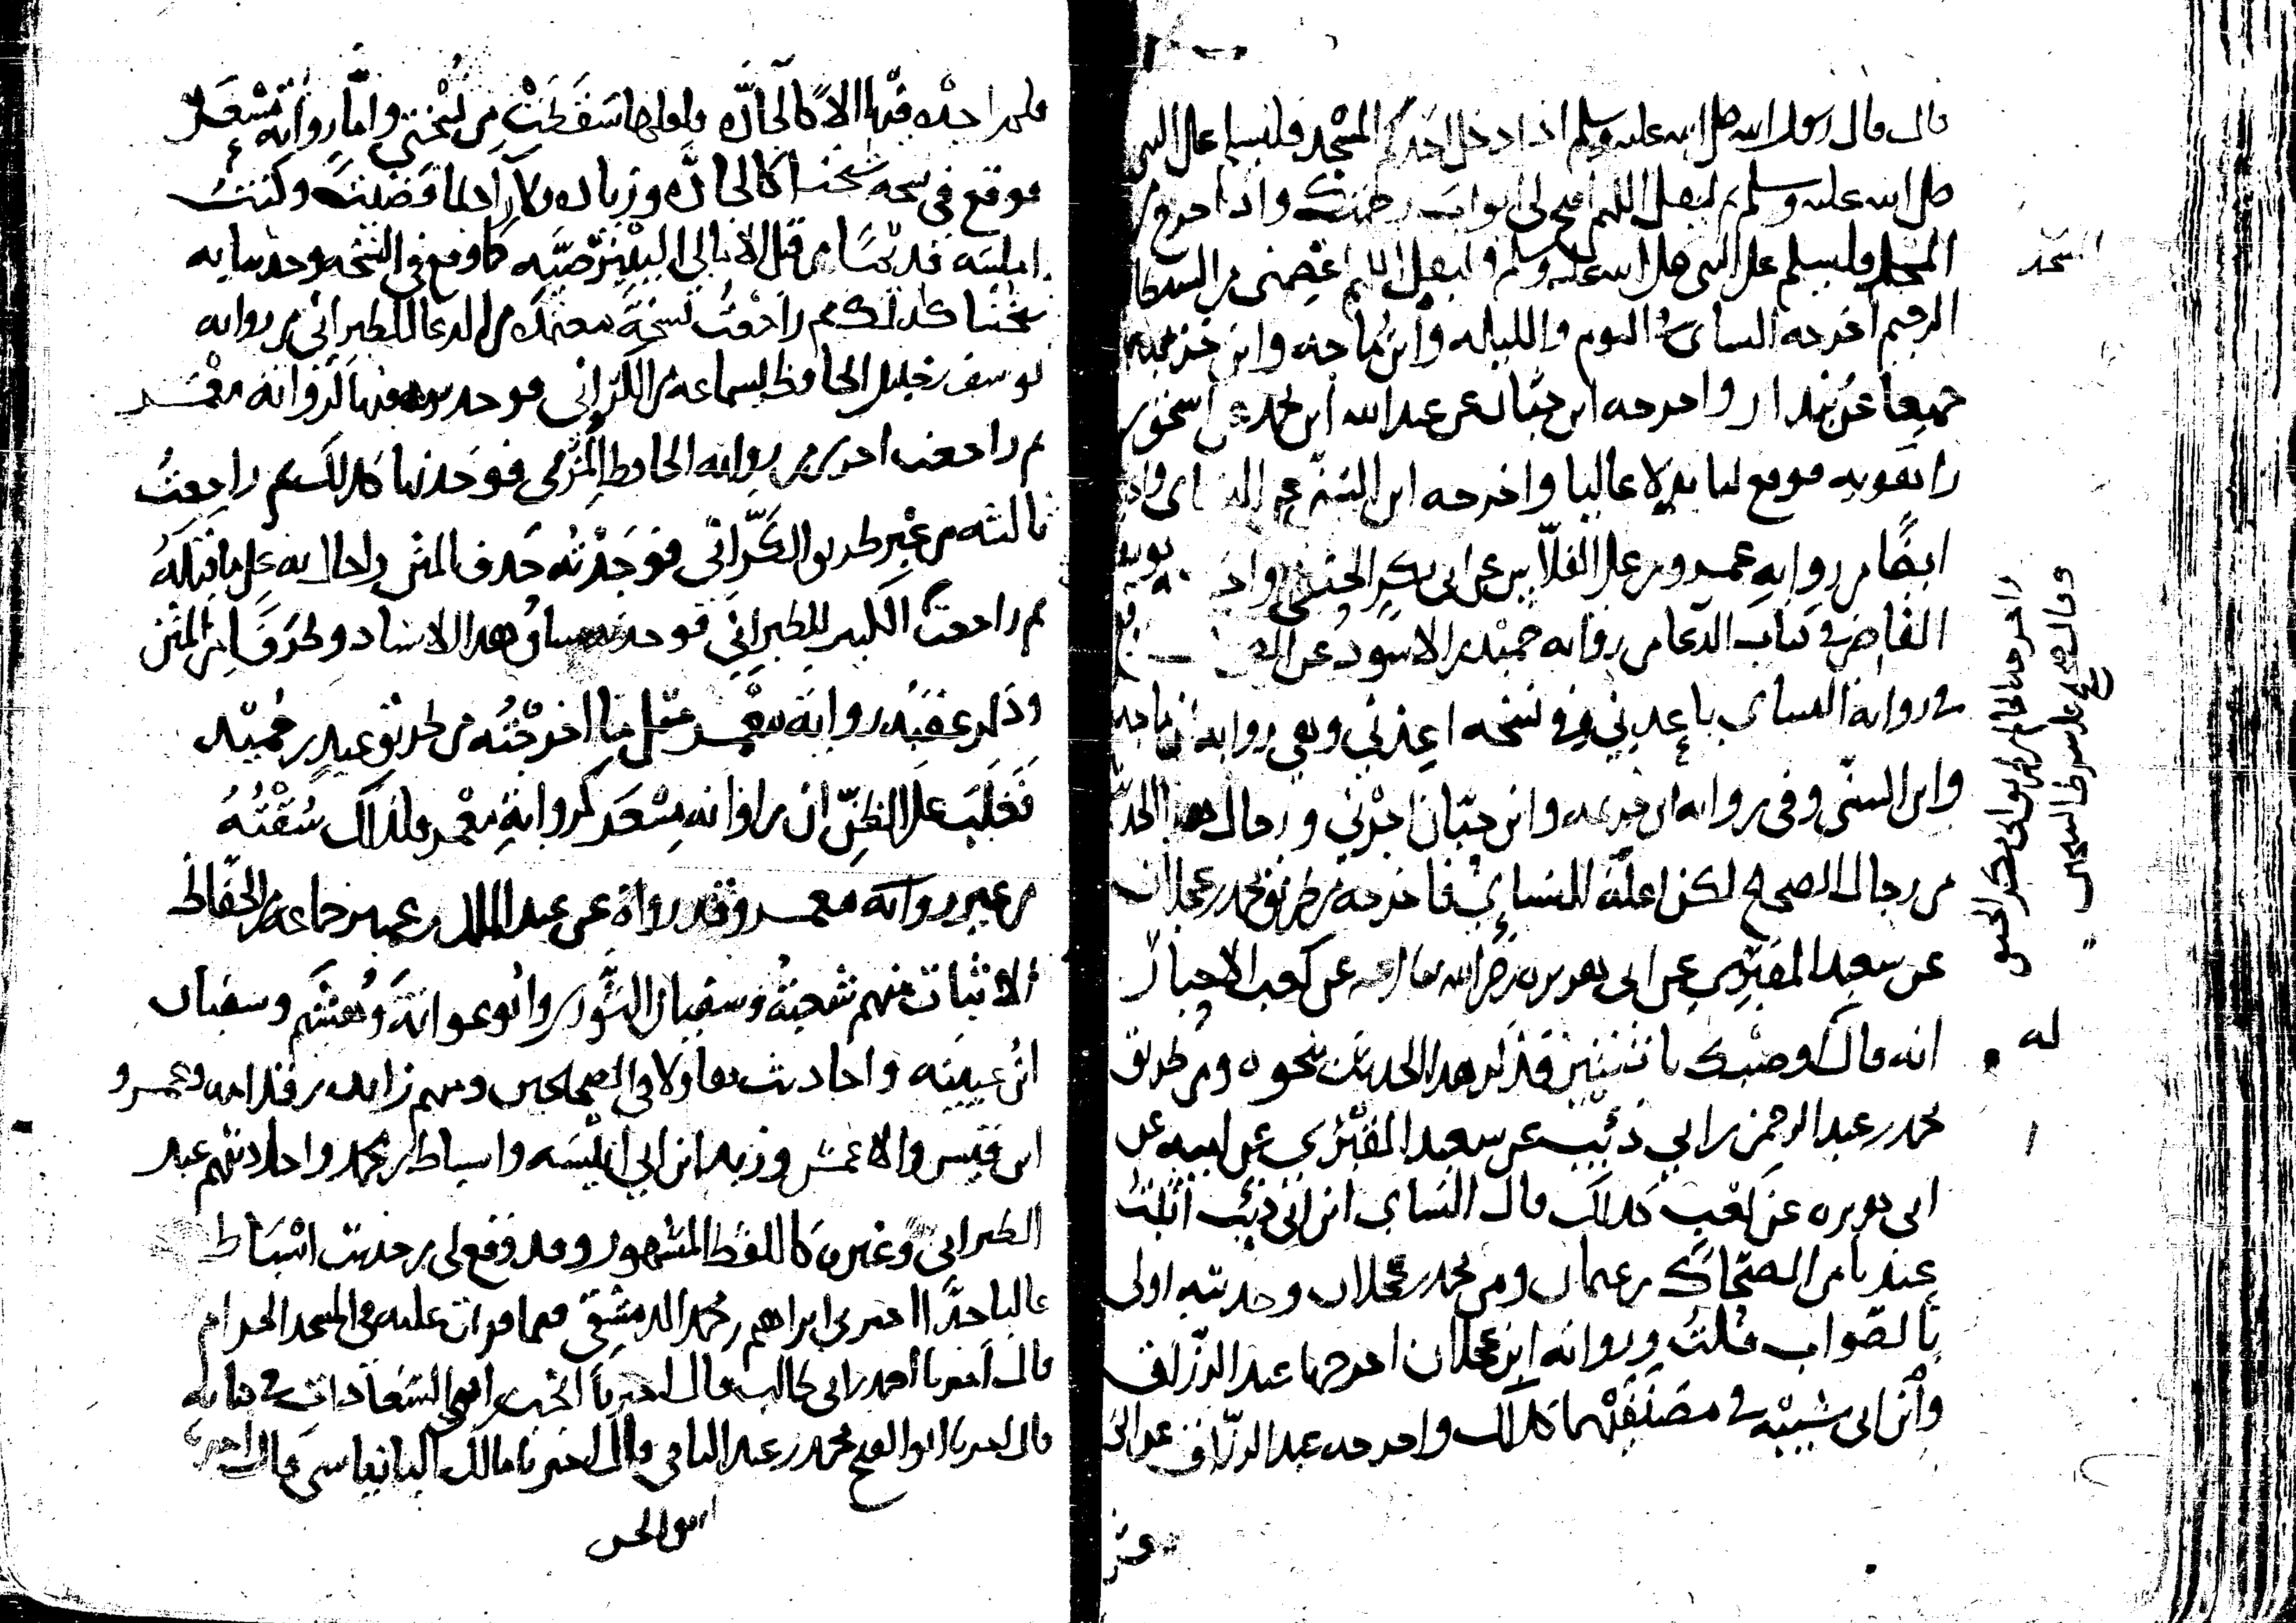 قال قال رسول الله صلى الله عليه وسلم اذا دخل احدكم المسجد فليسلم على النبي
صلى الله عليه وسلم ثم ليقل اللهم افتح لي ابواب رحمتك واذا خرج من
المسجد فليسلم على النبي صلى الله عليه وسلم وليقل اللهم اعصمني من الشيطان
الرجيم اخرجه النساي في اليوم والليله وابن ماجه وابن خزيمه
جميعا عن بندار واخرجه ابن حبان عن عبد الله ابن محمد عن اسحق بن
راهويه فوقع لنا بدلا عاليا واخرجه ابن السني عن النساي
ايضا من روايه عمرو بن علي الفلاس عن ابي بكر الحنفي
القاضي في كتاب الدعا من روايه حميد بن الاسود عن
في روايه النساي باعدني وفي نسخه اعذني وهي روايه ابن ماجه
وابن السني وفي روايه ابن خزيمه وابن حبان اجرني ورجال هذا الحديث
من رجال الصحيح لكن اعله النساي فاخرجه من طريق محمد بن عجلان
عن سعيد المقبري عن ابي هريره رضي الله تعالى عنه عن كعب الاحبار
انه قال اوصيك باثنتين فذكر هذا الحديث بنحوه ومن طريق
محمد بن عبد الرحمن بن ابي ذئب عن سعيد المقبري عن ابيه عن
ابي هريره عن كعب كذلك قال النساي ابن ابي ذئب اثبت
عندنا من الضحاك بن عثمان ومن محمد بن عجلان وحديثه اولى
بالصواب قلت وروايه ابن عجلان اخرجها عبد الرزاق
وابن ابي شيبه في مصنفيهما كذلك واخرجه عبد الرزاق عن ابي
المسجد
واخرجه الحاكم من طريق ابي بكر الحنفي
وقال صحيح على شرط الشيخين
له
فلم اجده فيها الا كالجاده ولعلها سقطت من نسختي واما روايه مسعر
فوقع في نسخه شيخنا كالجاده وزياده
امليته قديما من قبل الامالي
شيخنا كذلك ثم راجعت نسخة معتمدة من الدعا للطبراني من روايه
يوسف بن خليل الحافظ بسماعه من الكراني فوجدت فيها كروايه معمر
ثم راجعت اخرى من روايه الحافظ المزي فوجدتها كذلك ثم راجعت
ثالثه من غير طريق الكراني فوجدته حذف المتن واحال به على ما قبله
ثم راجعت الكبير للطبراني فوجدته ساق هذا الاسناد وطرفا من المتن
وذكر عقبه رواية معمر مثل ما اخرجته من طريق عبد بن حميد
فغلب على الظن ان مراده انه مسعر كرواية معمر ولذلك سقته
من غير روايه معمر وقد رواه عن عبد الملك بن عمير جماعه من الحفاظ
الاثبات منهم شعبة وسفيان الثوري وابو عوانة وهشيم وسفيان
ابن عيينه واحاديث هاولا في الصحيحين ومنهم زايده بن قدامه وعمرو
ابن قيس والاعمش وزيد ابن ابي انيسه واسباط بن محمد واحاديثهم عند
الطبراني وغيره كاللفظ المشهور وقد وقع لي من حديث اسباط
عاليا جدا اخبرني ابراهيم بن محمد الدمشقي فيما قرات عليه في المسجد الحرام
قال اخبرنا احمد بن ابي طالب قال اخبرنا انجب بن ابي السعادات في كتابه
قال اخبرنا ابو الفتح محمد بن عبد الباقي قال اخبرنا مالك البانياسي قال اخبرنا
ابو الحسن